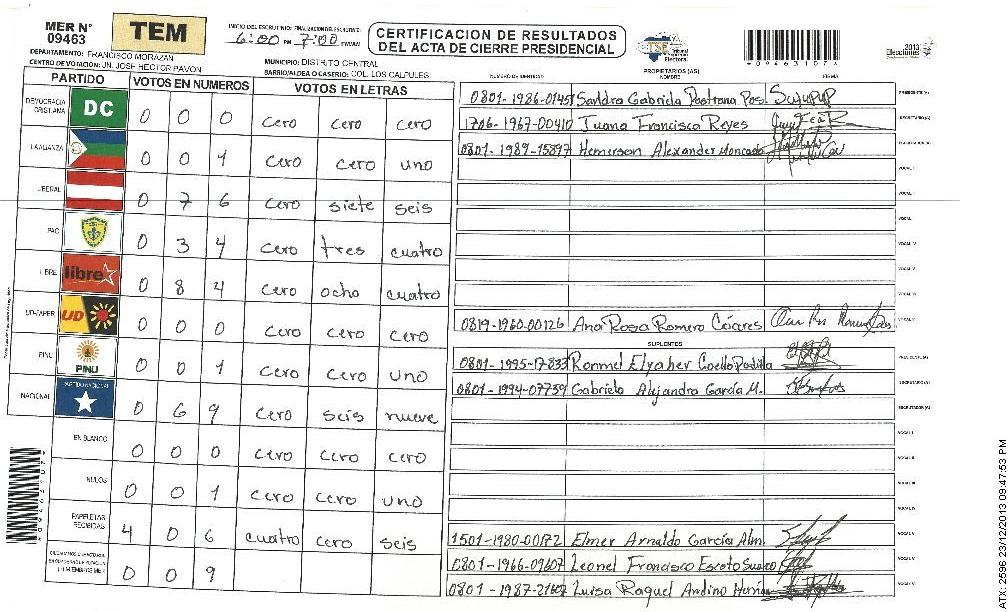 MER N° 09463
TEM
INICIO DEL ESCRUTINIO: FINALIZACION DEL ESCRUTINIO:
6:00 PM 7:00
CERTIFICACION DE RESULTADOS
DEL ACTA DE CIERRE PRESIDENCIAL
TSE Tribunal Supremo Electoral
2013
09463107
DEPARTAMENTO: FRANCISCO MORAZAN
MUNICIPIO: DISTRITO CENTRAL
CENTRO DE VOTACION: JN. JOSE HECTOR PAVON
BARRIO/ALDEA O CASERIO: COL. LOS CALPULES
PARTIDO VOTOS EN NUMEROS VOTOS EN LETRAS
DEMOCRACIA CRISTIANA DC 0 0 0 cero cero cero
LA ALIANZA 0 0 1 cero cero uno
LIBERAL 0 7 6 cero siete seis
PAC 0 3 4 cero tres cuatro
LIBRE libre 0 8 4 cero ocho cuatro
UD-FAPER UD 0 0 0 cero cero cero
PINU PINU 0 0 1 cero cero uno
NACIONAL PARTIDO NACIONAL 0 6 9 cero seis nueve
EN BLANCO 0 0 0 cero cero cero
NULOS 0 0 1 cero cero uno
PAPELETAS RECIBIDAS 4 0 6 cuatro cero seis
0 0 9
NUMERO DE IDENTIDAD PROPIETARIOS (AS) NOMBRE FIRMA
0801-1986-01451 Sandra Gabriela Pastrana Pos. PRESIDENTE (A)
1706-1967-00410 Juana Francisca Reyes SECRETARIO (A)
0801-1989-15897 Hemerson Alexander Moncada ESCRUTADOR (A)
VOCAL I
VOCAL
VOCAL
VOCAL IV
VOCAL V
VOCAL VI
0819-1960-00126 Ana Rosa Romero Cáceres VOCAL
SUPLENTES
0801-1995-17833 Ronmel Elyaher Coello Padilla PRESIDENTE (A)
0801-1994-07759 Gabriela Alejandra García M. SECRETARIO (A)
ESCRUTADOR (A)
VOCAL I
VOCAL II
VOCAL III
VOCAL IV
1501-1980-00172 Elmer Arnaldo García Alm. VOCAL
0801-1966-09607 Leonel Francisco Escoto Suazo VOCAL
0801-1987-21607 Luisa Raquel Andino VOCAL
TX: 2596 23/12/2013 09:47:53 PM